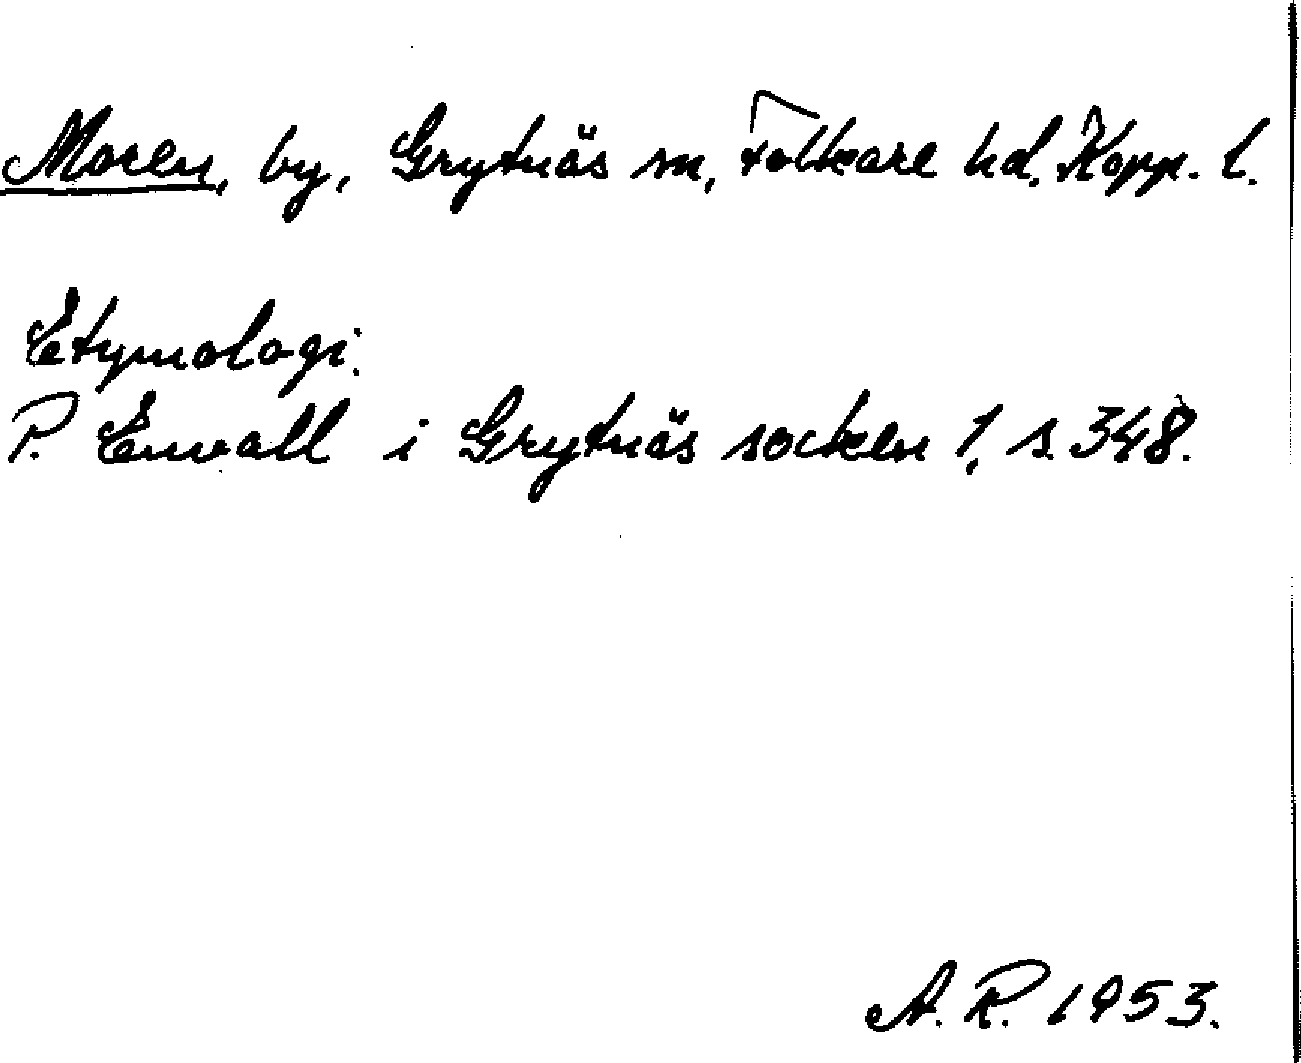 Moren, by, Grytnäs sn, Folkare hd. Kopp. l.
Etymologi.
P. Envall i Grytnäs socken 1, s. 348.
A. R. 1953.